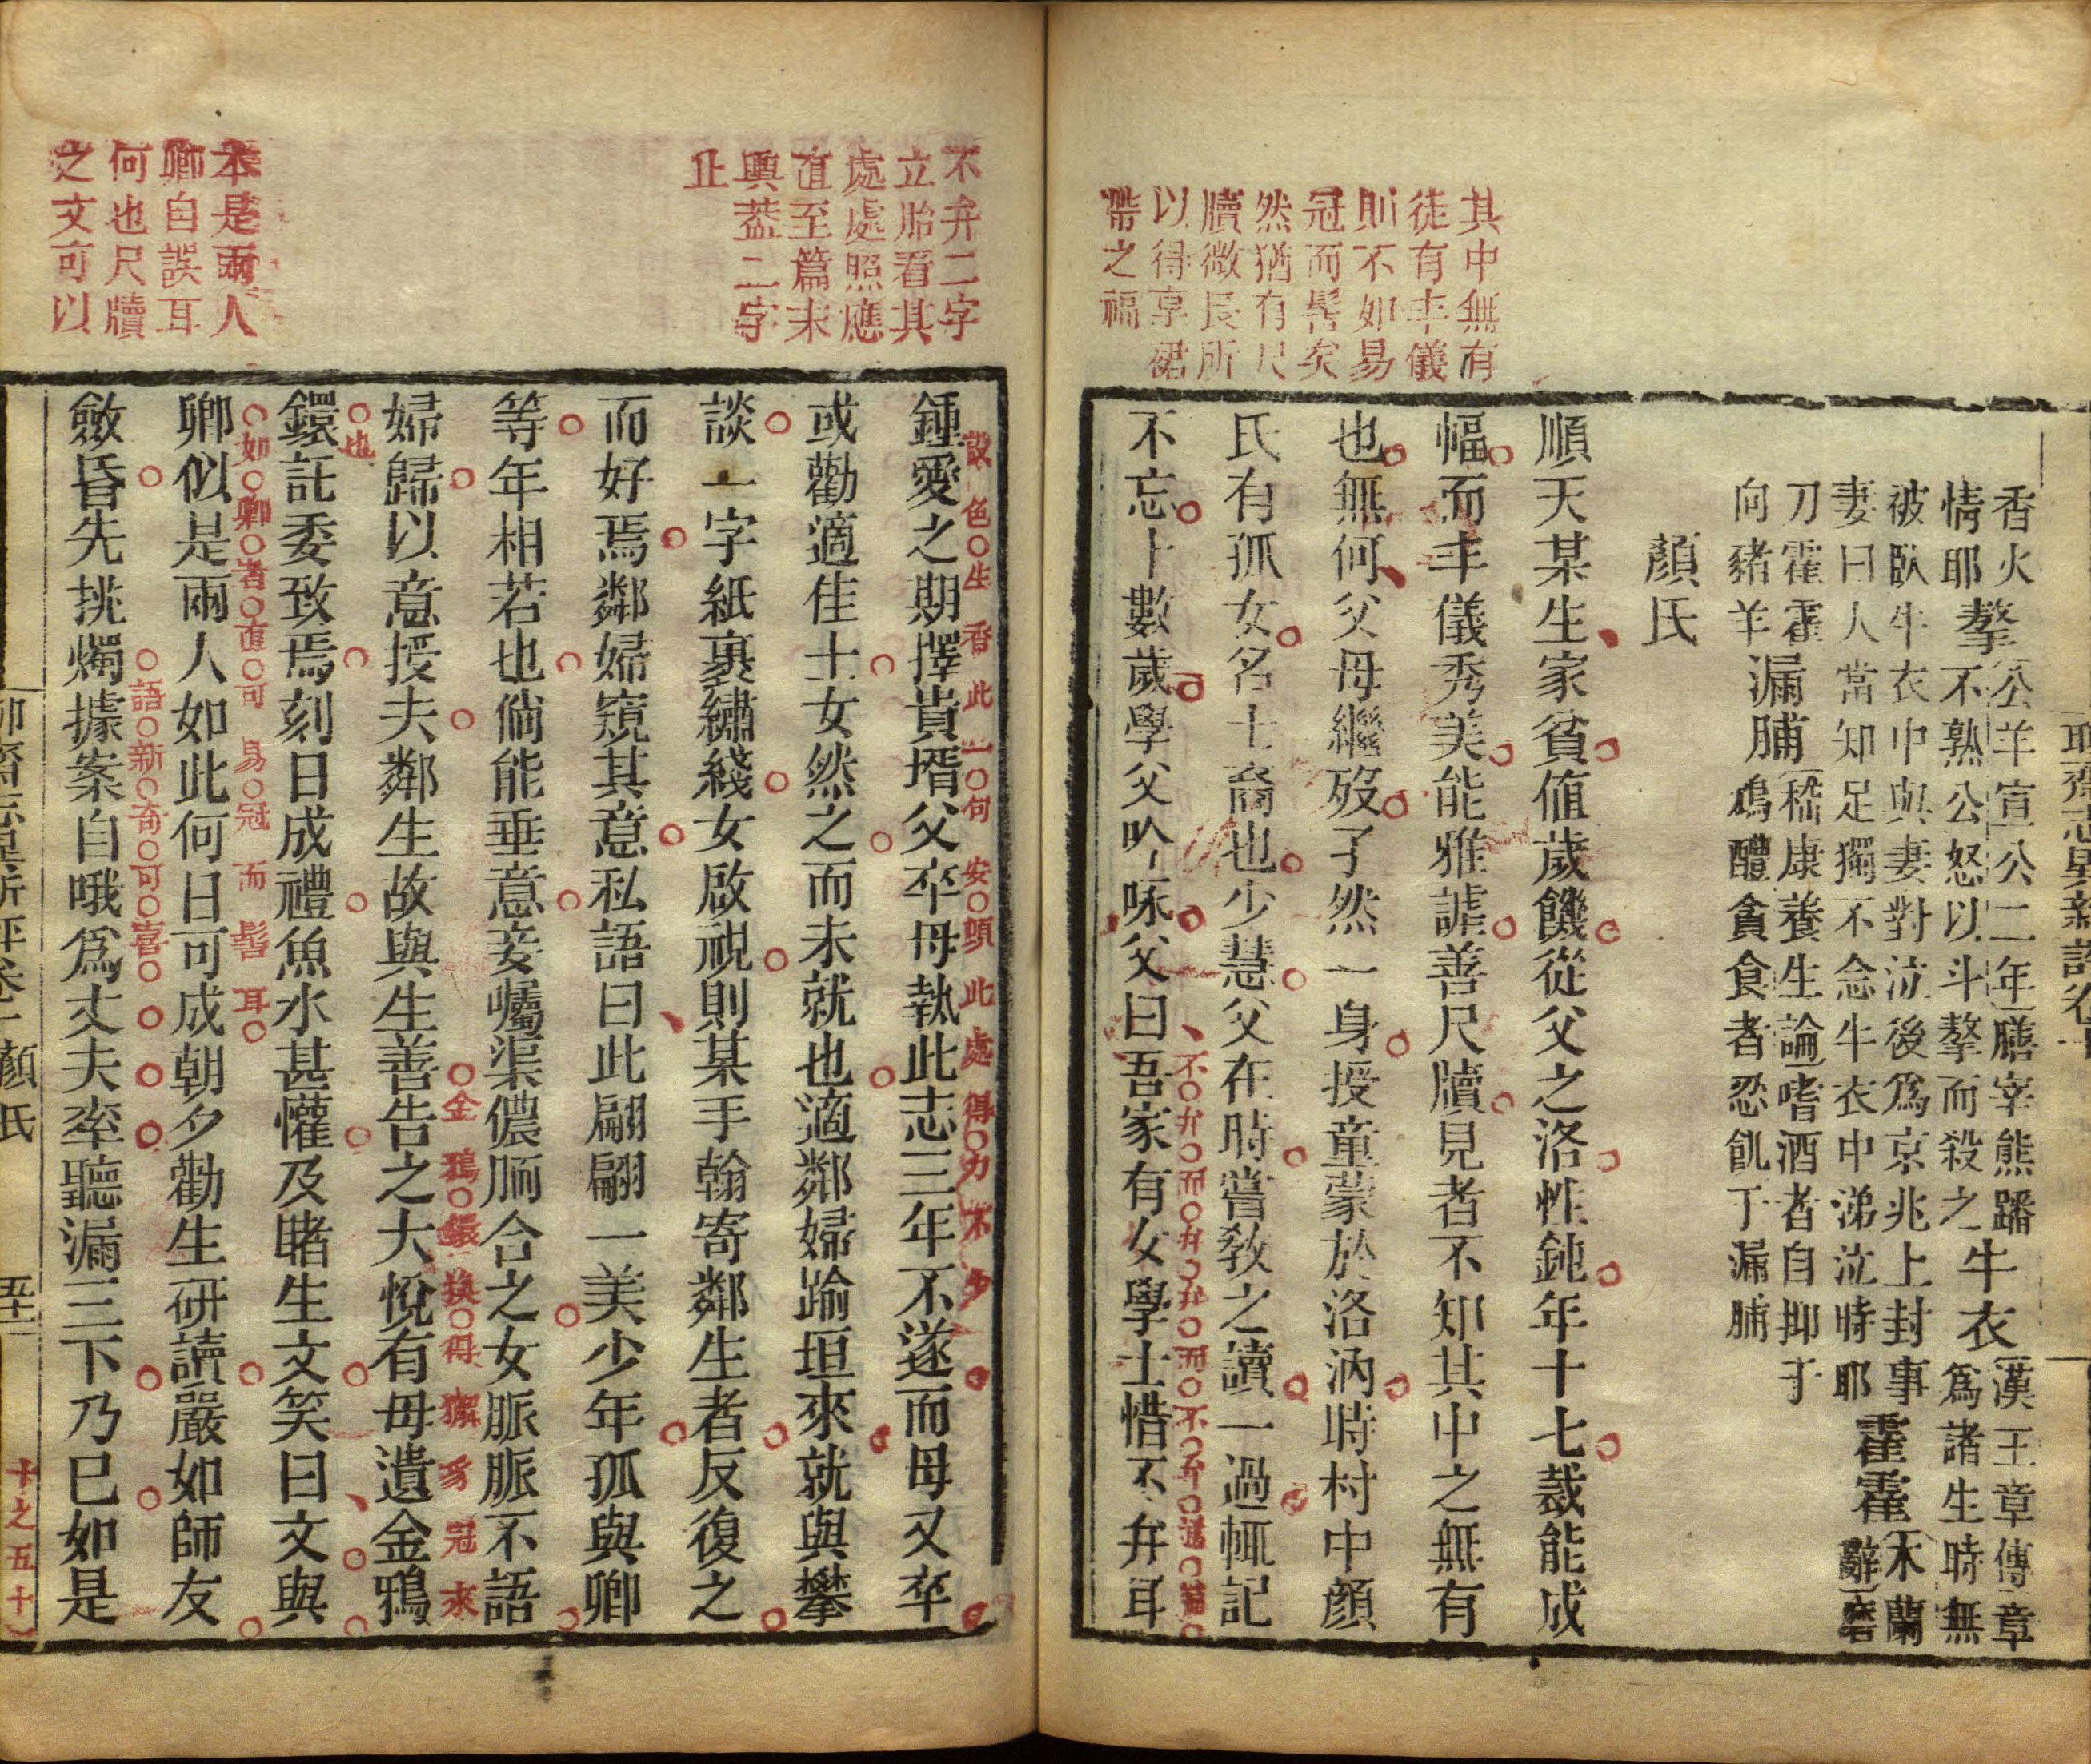 聊齋志異新評卷十
其中無有
徒有丰儀
則不如易
冠而髻矣
然猶有尺
牘微長所
以得享裙
帶之福
香火
情耶
摮
公羊宣公二年膳宰熊蹯
不熟公怒以斗摮而殺之
牛衣
漢王章傳章
為諸生時無
被臥牛衣中與妻對泣後為京兆上封事
妻曰人當知足獨不念牛衣中涕泣時耶
霍霍
木蘭
辭磨
刀霍霍
向豬羊
漏脯
嵇康養生論嗜酒者自抑于
鴆醴貪食者忍飢于漏脯
顏氏
順天某生家貧值歲饑從父之洛性鈍年十七裁能成
幅而丰儀秀美能雅謔善尺牘見者不知其中之無有
也無何父母繼歿孑然一身授童蒙於洛汭時村中顏
氏有孤女名士裔也少慧父在時嘗教之讀一過輒記
不忘十數歲學父吟咏父曰吾家有女學士惜不弁耳
不弁而弁弁而不弁
不弁二字
立胎看其
處處照應
直至篇末
與葢二字
止
鍾愛之期擇貴壻父卒母執此志三年不遂而母又卒
設色生香此一句安頭此處得力不少
或勸適佳士女然之而未就也適鄰婦踰垣來就與攀
談一字紙裹繡綫女啟視則某手翰寄鄰生者反復之
而好焉鄰婦窺其意私語曰此翩翩一美少年孤與卿
等年相若也倘能垂意妾囑渠儂胹合之女脈脈不語
婦歸以意授夫鄰生故與生善告之大悅有母遺金鴉
金鴉鐶換得獬豸冠來
也
鐶託委致焉刻日成禮魚水甚懽及睹生文笑曰文與
本是兩人
卿自誤耳
何也尺牘
之文可以
卿似是兩人如此何日可成朝夕勸生研讀嚴如師友
如卿者直可易冠而髻耳
斂昏先挑燭據案自哦為丈夫率聽漏三下乃已如是
語新奇可喜
聊齋志異新評卷十 顏氏
十之五十